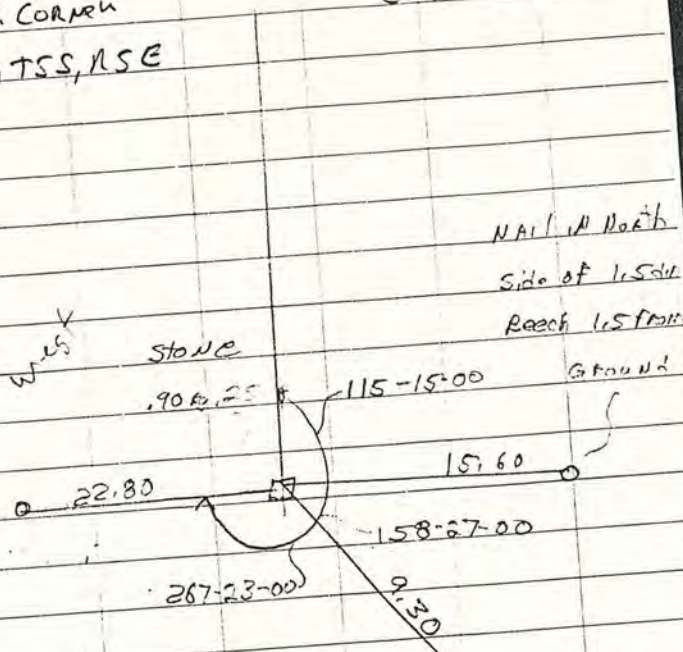 CORNER
TSS, RSE
NAIL IN North
Side of 1.5
Beech 1.5 from
Ground
West
Stone
.90 .25
115-15-00
22.80
15.60
158-27-00
267-23-00
9.30